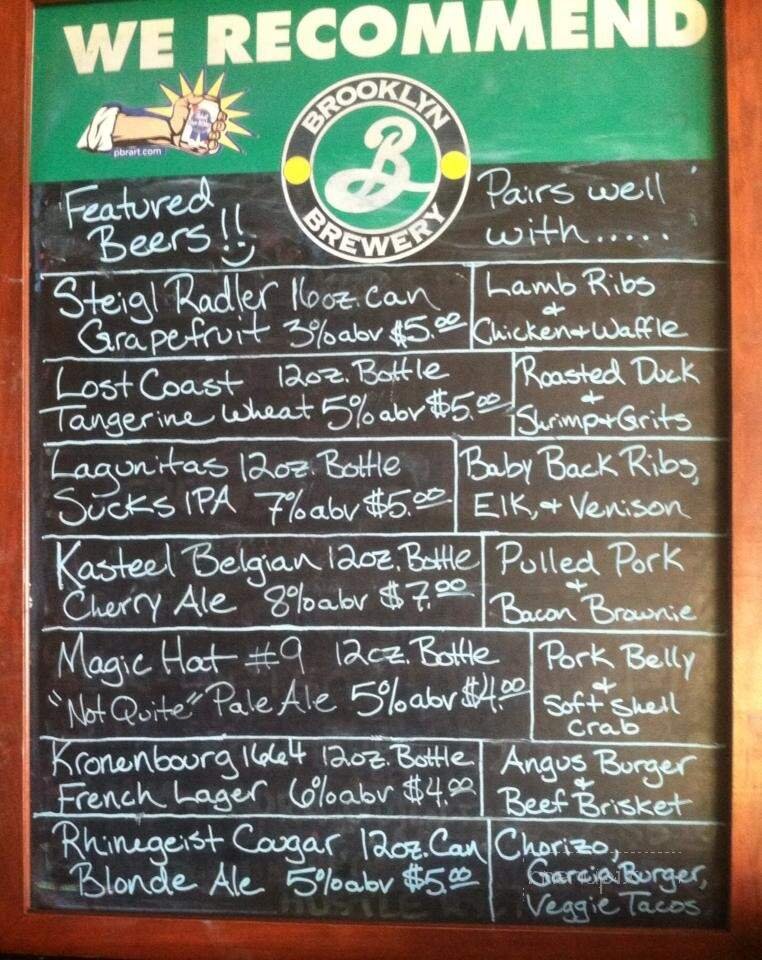 WE RECOMMEND
pbrart.com
BROOKLYN
B
BREWERY
Featured
Beers!!
Pairs well
with.....
Steigl Radler 16oz. can
Grapefruit 3%abv $5.00
Lamb Ribs
+
Chicken+Waffle
Lost Coast 12oz. Bottle
Tangerine Wheat 5%abv $5.00
Roasted Duck
+
Shrimp+Grits
Lagunitas 12oz. Bottle
Sucks IPA 7%abv $5.00
Baby Back Ribs,
Elk,+ Venison
Kasteel Belgian 12oz. Bottle
Cherry Ale 8%abv $7.00
Pulled Pork
+
Bacon Brownie
Magic Hat #9 12oz. Bottle
"Not Quite" Pale Ale 5%abv $4.00
Pork Belly
+
Soft Shell
Crab
Kronenbourg 1664 12oz. Bottle
French Lager 6%abv $4.00
Angus Burger
+
Beef Brisket
Rhinegeist Cougar 12oz. Can
Blonde Ale 5%abv $5.00
Chorizo,
Burger,
Veggie Tacos